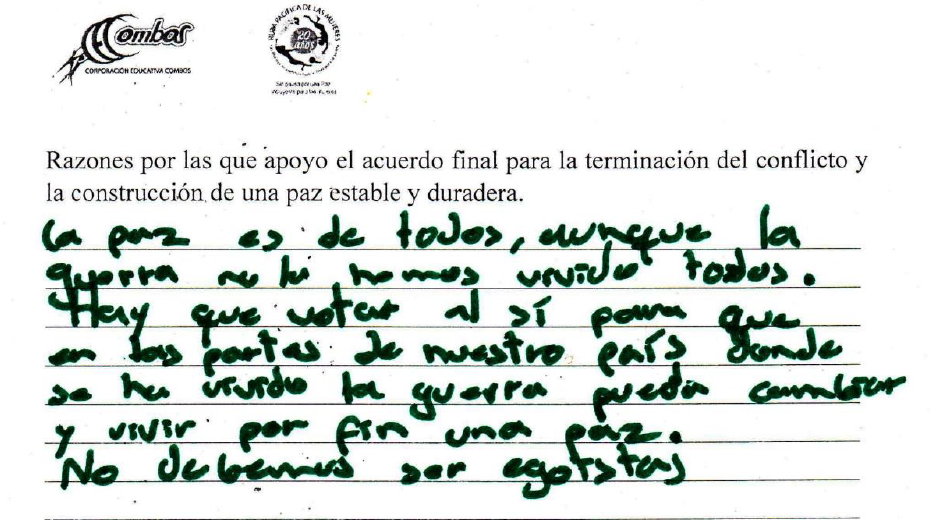 Combos
CORPORACIÓN EDUCATIVA COMBOS
RUTA PACÍFICA DE LAS MUJERES
20
años
Razones por las que apoyo el acuerdo final para la terminación del conflicto y
la construcción de una paz estable y duradera.
La paz es de todos, aunque la
guerra no la hemos vivido todos.
Hay que votar al sí para que
en las partes de nuestro país donde
se ha vivido la guerra pueda cambiar
y vivir por fin una paz.
No debemos ser egoístas